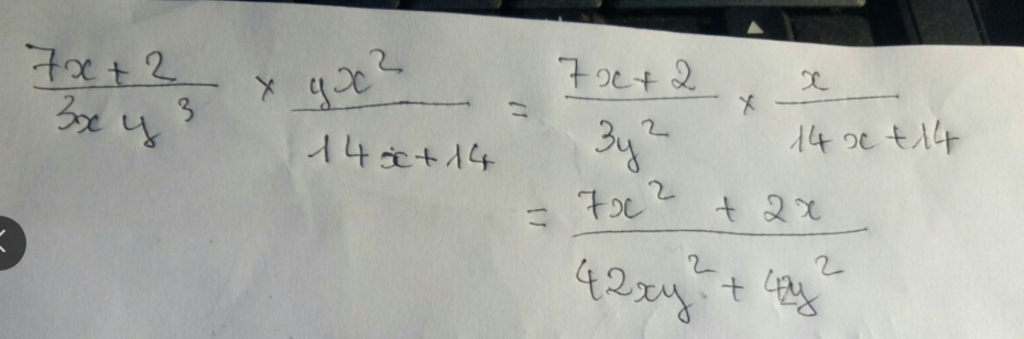 (7x+2)/(3xy³) × (yx²)/(14x+14) = (7x+2)/(3y²) × x/(14x+14)
= (7x²+2x)/(42xy²+42y²)